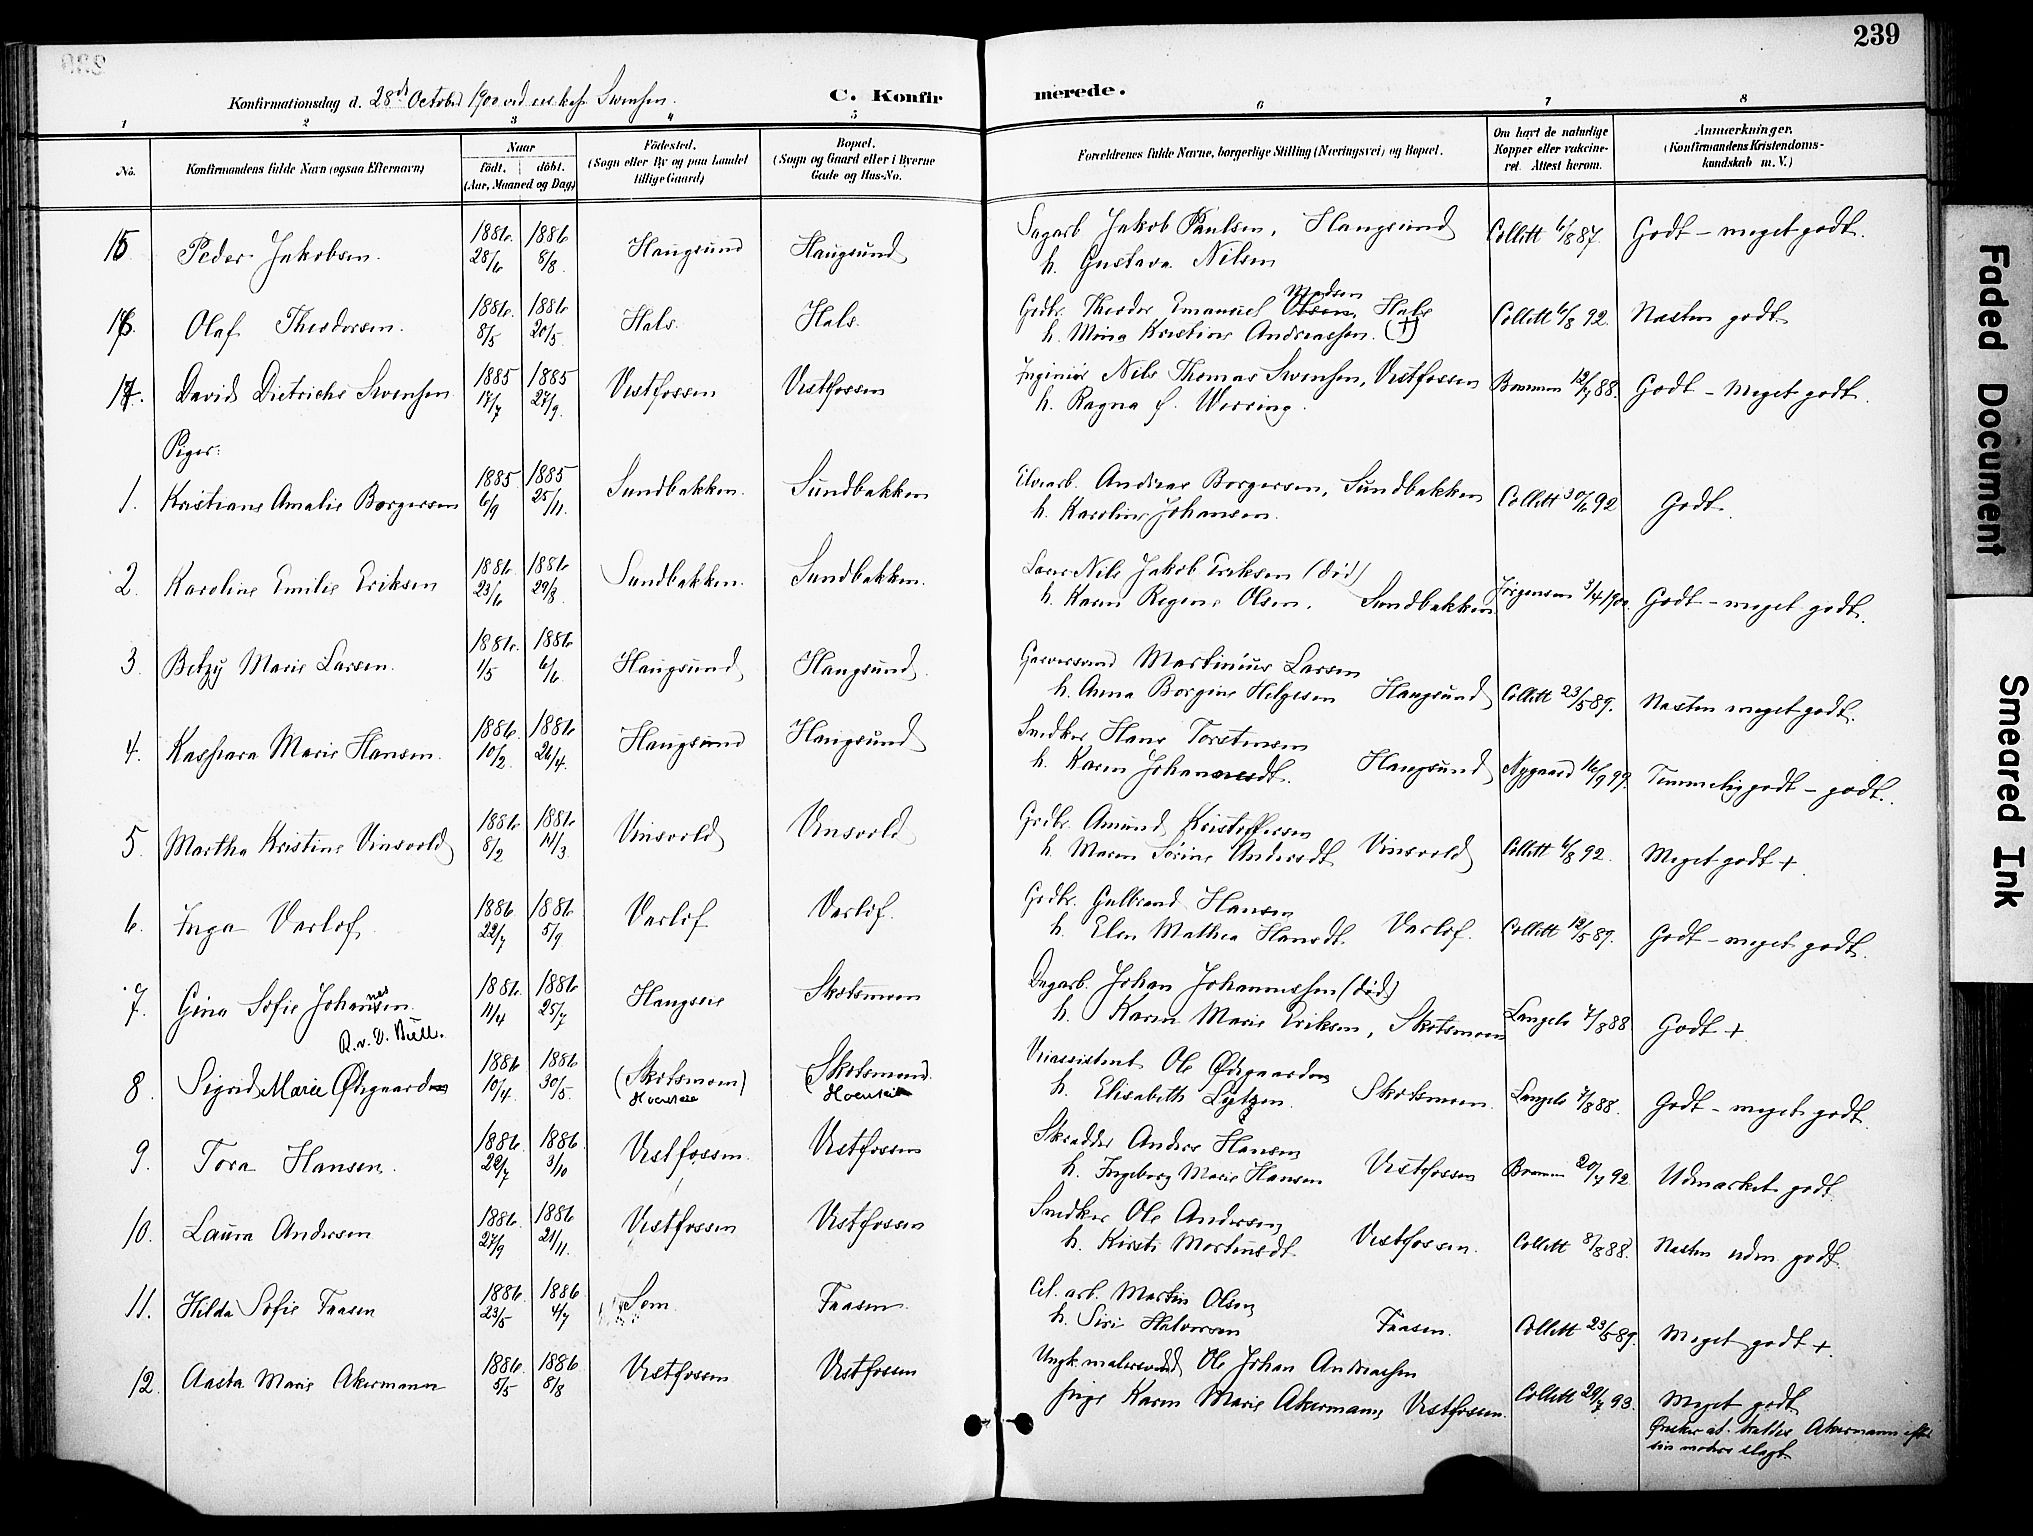 239
Konfirmationsdag d. 28de October 1900 ved Swensen. C. Konfirmerede.
1 2 3 4 5 6 7 8
No. Konfirmandens fulde Navn (ogsaa Efternavn) Naar födt. döbt. (Aar, Maaned og Dag) Födested. (Sogn eller By og paa Landet tillige Gaard) Bopæl. (Sogn og Gaard eller i Byerne Gade og Hus-No. Forældrenes fulde Navne, borgerlige Stilling (Næringsvei) og Bopæl. Om havt de naturlige Kopper eller vakcineret. Attest herom. Anmærkninger. (Konfirmandens Kristendomskundskab m. V.)
15 Peder Jakobsen. 1886. 28/6 1886 8/8. Haugsund Haugsund Sagarb. Jakob Paulsen, Haugsund Collett 6/8 87. Godt - meget godt.
h. Gustava Nilsen
16. Olaf Theodorsen. 1886. 8/5 1886 20/5. Hals. Hals. Grdbr. Theodor Emanuel Olsen, Madsen Hals Collett 6/8 92. Næsten godt
h. Mina Kristine Andreassen. (†)
17. David Dietrichs Swensen 1885 17/7 1885 27/9. Vestfossen Vestfossen Ingeniör Nils Thomas Swensen, Vestfossen 12/7 88. Godt - Meget godt.
h. Ragna f. Werring.
Piger:
1. Kristiane Amalie Borgersen 1885 6/9 1885 25/11. Sundbakken. Sundbakken Elvearb. Andreas Borgersen, Sundbakken Collett 30/6 92 Godt.
h. Karoline Johansen.
2. Karoline Emilie Eriksen 1886. 23/6 1886 29/8. Sundbakken. Sundbakken. Nils Jakob Eriksen (död)
h. Karen Regine Olsen. Sundbakken Jörgensen 3/4 1900 Godt - meget godt.
3. Betzy Marie Larsen. 1886. 1/5 1886 6/6. Haugsund Haugsund. Garversvend Martinius Larsen
h. Anna Borgine Helgesen Haugsund Collett 23/5 89. Næsten meget godt.
4. Kaspara Marie Hansen. 1886. 10/2. 1886 26/4. Haugsund Haugsund Snedker Hans Torstensen
h. Karen Johannesdt. Haugsund Nygaard 16/9 99. Temmelig godt - godt.
5. Martha Kristine Vinsvold 1886. 8/2 1886 14/3. Vinsvold Vinsvold Grdbr. Amund Kristoffersen
h. Maren Sörine Andersdt. Vinsvold Collett 6/8 92. Meget godt +.
6. Inga Varlof. 1886 22/7 1886 5/9. Varlof Varlof. Grdbr. Gulbrand Hansen
h. Elen Mathea Hansdt. Varlof. Collett 12/5 89. Godt - meget godt.
7. Gina Sofie Johannessen. 1886. 11/4 1886 25/7 Haugseie Skotsmoen Dagarb. Johan Johannessen (död)
h. Karen Marie Eriksen, Skotsmoen 7/8 88 Godt +
R. v. D. Bull.
8. Sigrid Marie Ødegaarden 1886 10/4. 1886 30/5. (Skotsmoen) Skotsmoen. Veiassistent Ole Ødegaarden
h. Elisabeth Lytzen. Skotsmoen. 7/8 88. Godt - meget godt.
9. Tora Hansen. 1886. 22/7 1886. 3/10 Vestfossen. Vestfossen Skrædder Anders Hansen
h. Ingeborg Marie Hansen Vestfossen 20/7 92. Udmærket godt.
10. Laura Andersen 1886. 27/9 1886 21/11. Vestfossen Vestfossen Snedker Ole Andersen
h. Kirsti Mortensdt. Vestfossen. Collett 8/8 88. Næsten udm. godt.
11. Hilda Sofie Faasen 1886. 23/5 1886 4/7 Sem. Faasen. Cel. arb. Martin Olsen
h. Siri Halvorsen Faasen. Collett 23/5 89. Meget godt +.
12. Aasta Marie Akermann 1886. 5/5 1886 8/8 Vestfossen Vestfossen Ungk. malersvend Ole Johan Andreassen
pige Karen Marie Akermann, Vestfossen. Collett 29/7 93. Meget godt
Ønsker at kaldes Akermann efter sin moders slægt.
Faded Document
Smeared Ink